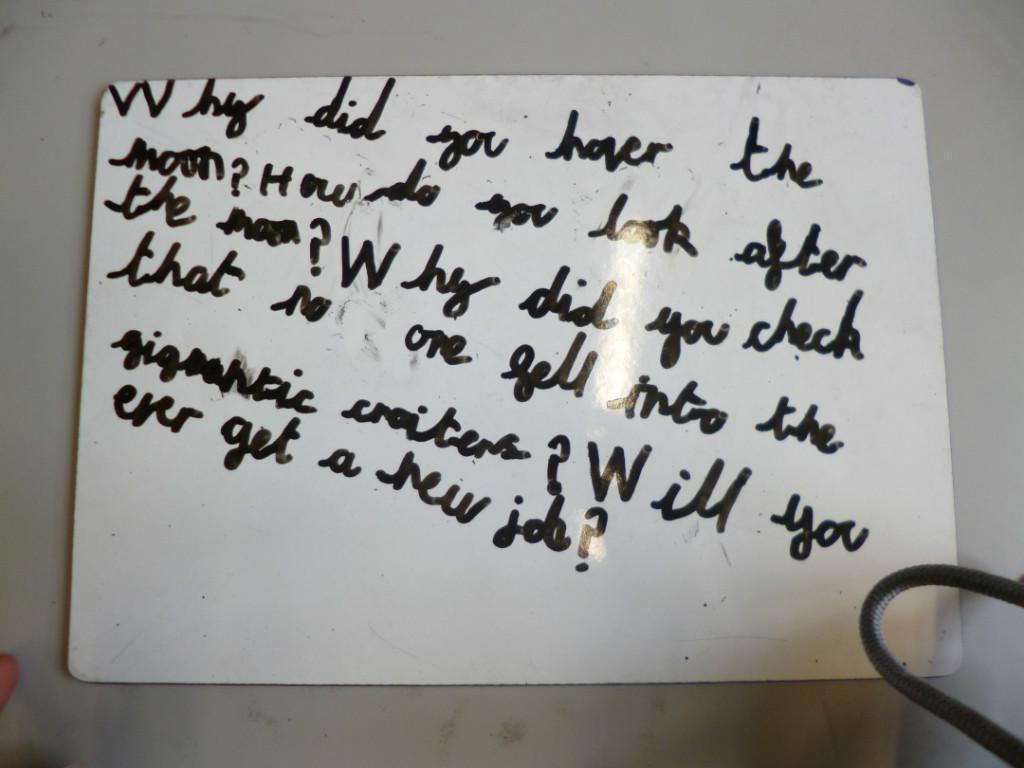 Why did you hover the
moon? How do you look after
the moon? Why did you check
that no one fell into the
gigantic craiters? Will you
ever get a new job?